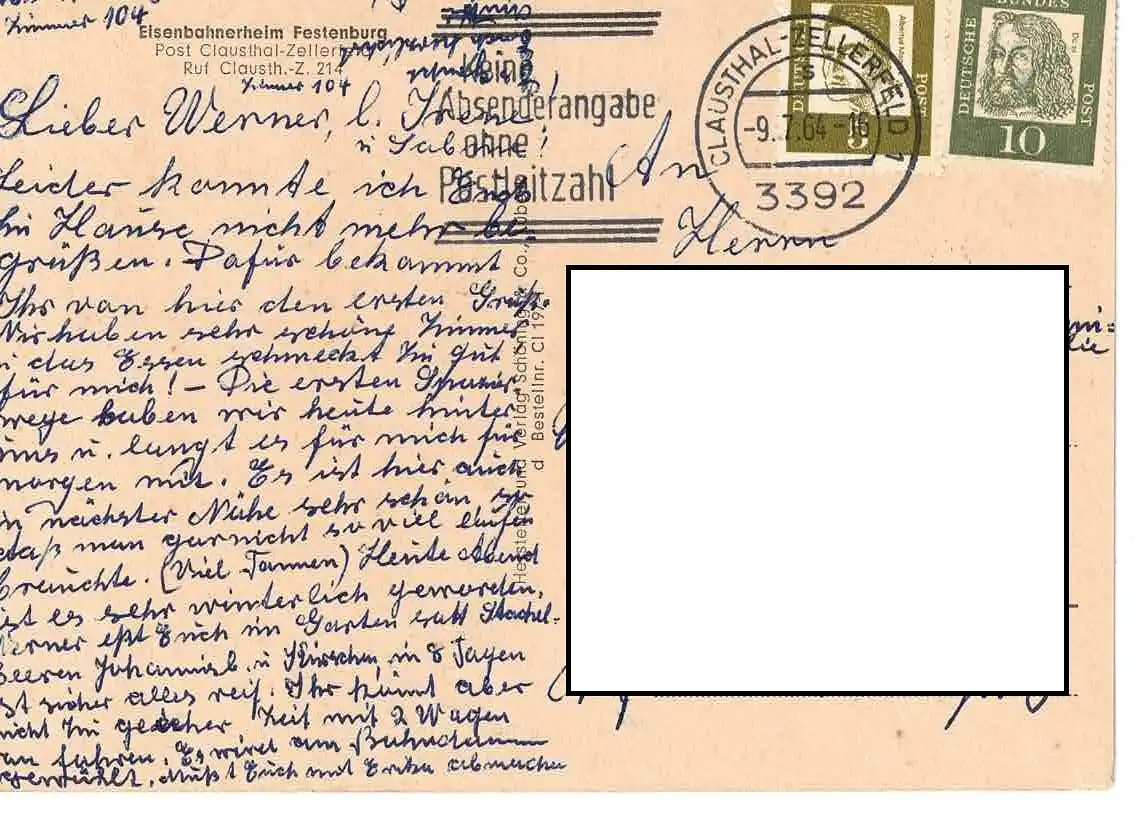 Zimmer 104
Eisenbahnerheim Festenburg
Post Clausthal-Zellerf
Ruf Clausth.-Z. 214
Zimmer 104
Keine
Absenderangabe
ohne
Postleitzahl
CLAUSTHAL-ZELLERFELD 1
s
-9.7.64-16
3392
DEUTSCHE
POST
5
DEUTSCHE
BUNDES
POST
10
Lieber Werner, l. Irene
u Sabine!
Leider konnte ich Euch
zu Hause nicht mehr be-
grüßen. Dafür bekommt
Ihr von hier den ersten Gruß.
Wir haben sehr schöne Zimmer
u das Essen schmeckt zu gut
für mich! – Die ersten Spazier-
wege haben wir heute hinter
uns u. langt es für mich für
morgen mit. Es ist hier auch
in nächster Nähe sehr schön so
daß man garnicht so viel laufen
breuchte. (Viel Tannen) Heute Abend
ist es sehr winterlich geworden.
Werner eßt Euch im Garten satt Stachel-
beeren Johannisb. u Kirschen, in 8 Tagen
ist sicher alles reif. Ihr könnt aber
nicht zu gleicher Zeit mit 2 Wagen
an fahren. Es wird am Bahndamm
gewühlt. Müßt Euch mit Erika abmachen
An
Herrn
Hersteller und Verlag Schöning & Co., Lüb
d Bestellnr. Cl 19